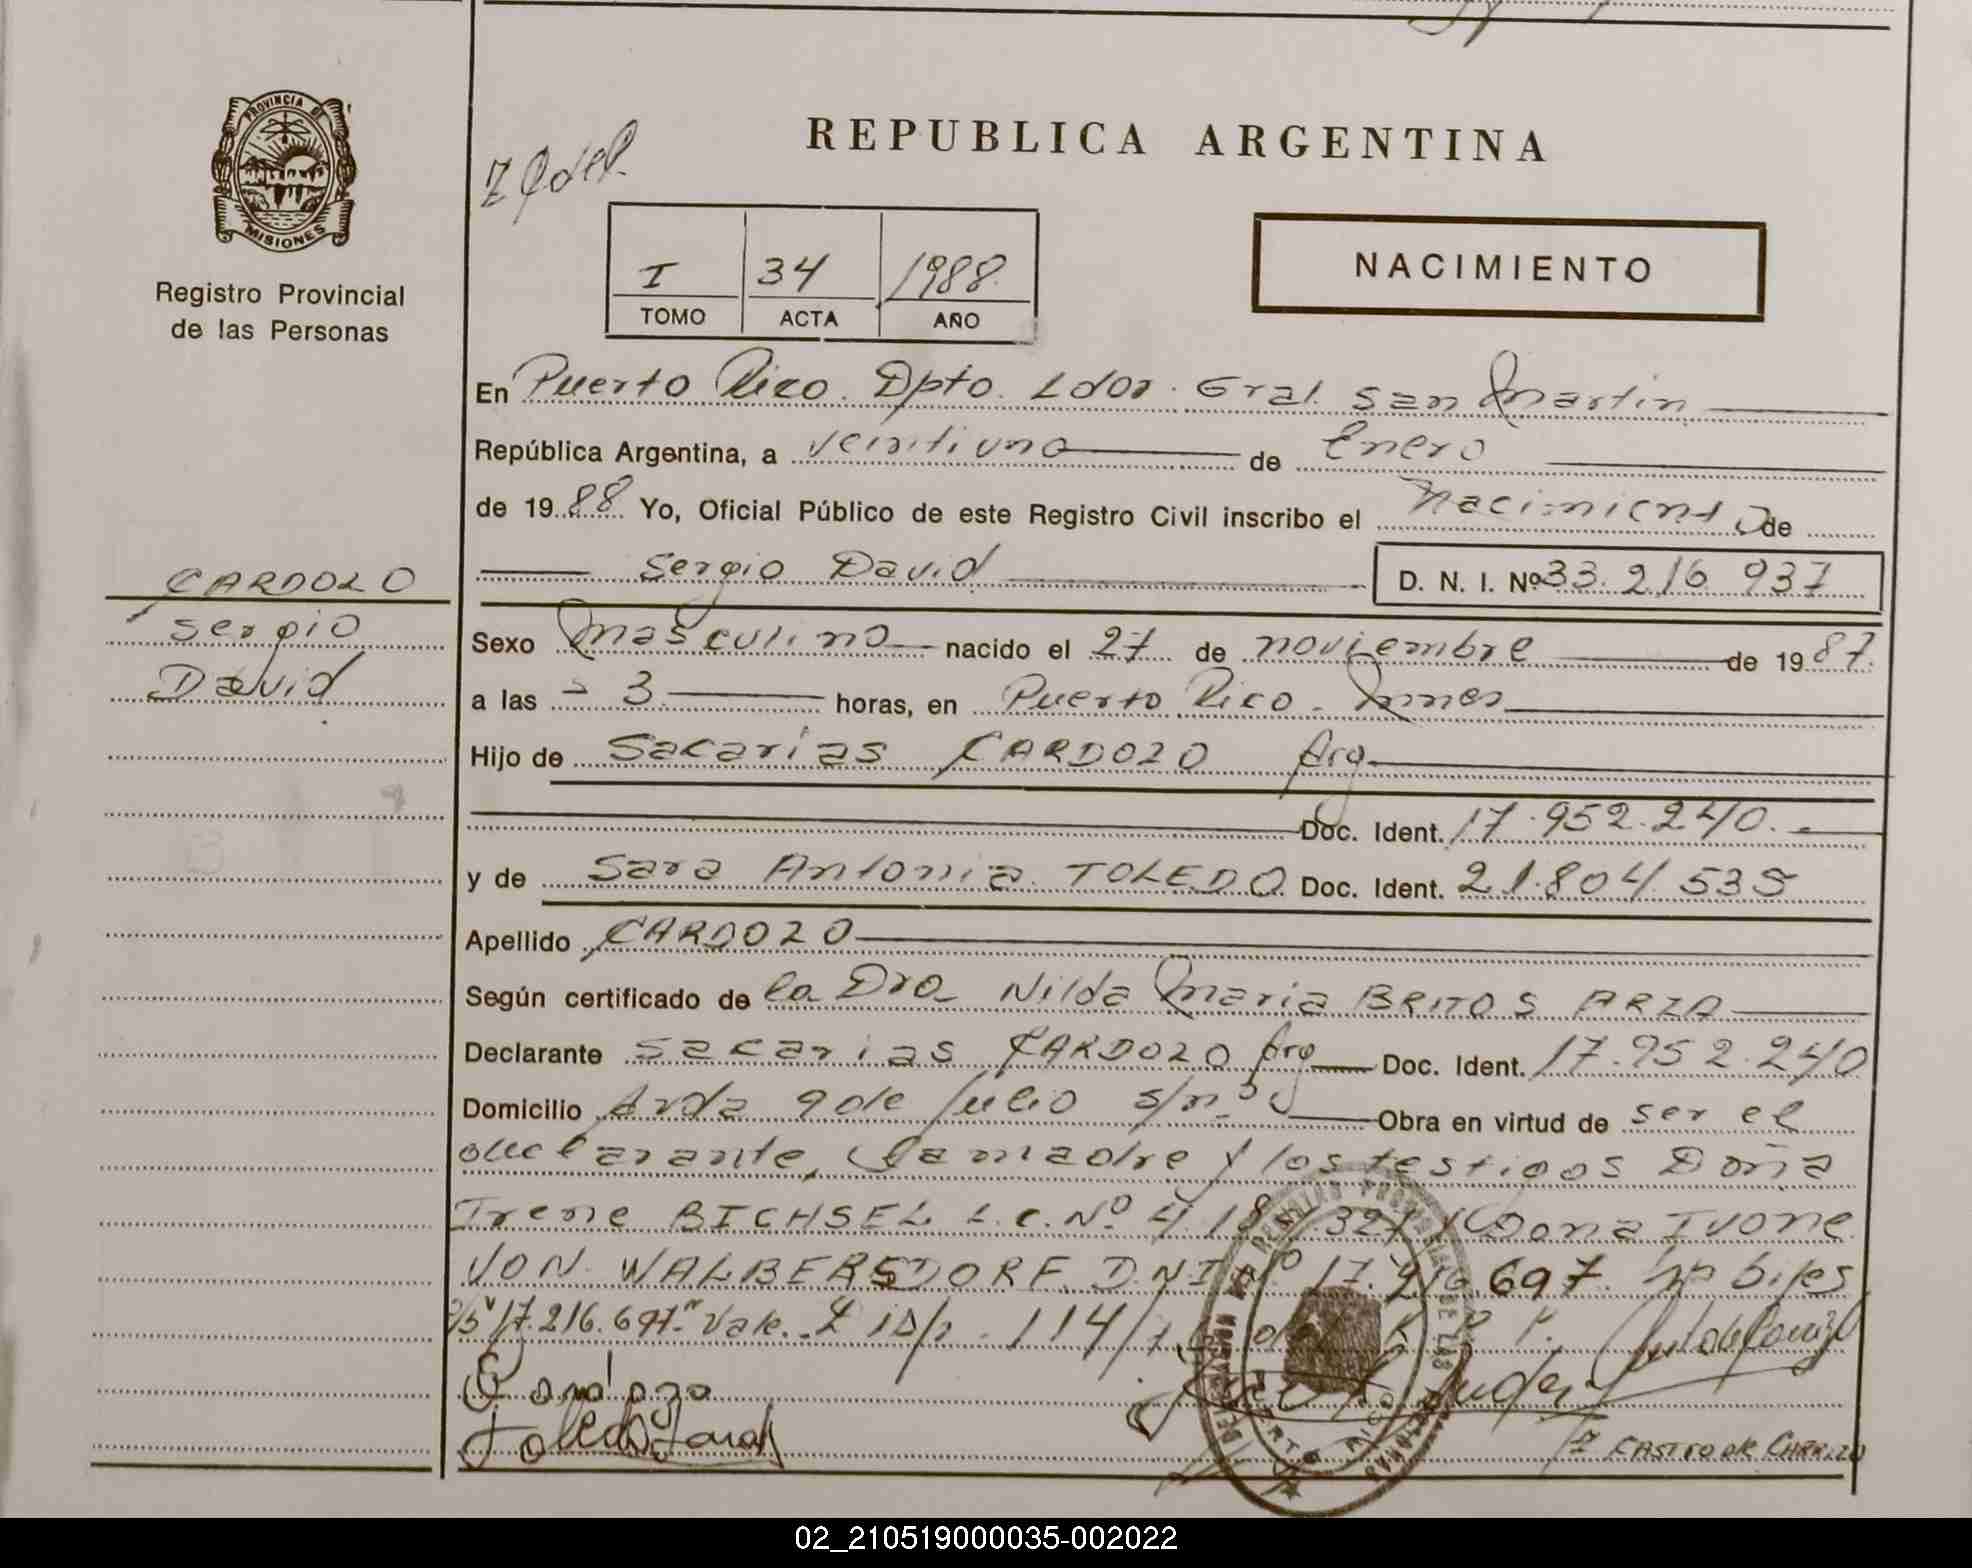 PROVINCIA DE
MISIONES
Registro Provincial
de las Personas
REPUBLICA ARGENTINA
I 34 1988
TOMO ACTA AÑO
NACIMIENTO
En Puerto Rico. Dpto. Ldor. Gral. San Martin
República Argentina, a veintiuno de Enero
de 1988 Yo, Oficial Público de este Registro Civil inscribo el Nacimiento de
Sergio David D. N. I. Nº 33.216.937
CARDOZO
Sergio
David
Sexo Masculino nacido el 27 de noviembre de 1987.
a las 3 horas, en Puerto Rico. Mnes
Hijo de Sacarias CARDOZO Arg.
Doc. Ident. 17.952.240.-
y de Sara Antonia TOLEDO Doc. Ident. 21.804.535
Apellido CARDOZO
Según certificado de la Dra Nilda Maria BRITOS ARZA
Declarante Sacarias CARDOZO Arg Doc. Ident. 17.952.240
Domicilio Avda 9 de Julio s/nº Obra en virtud de ser el
declarante, la madre y los testigos Doña
Irene BICHSEL L.C. Nº 4.18 .321 y Dona Ivone
VON WALBERSDORF D.N.I Nº 17.216.697.
17.216.697" Vale.
Cardozo
Toledo Sara
CASTRO DE CARRIZO
02_210519000035-002022